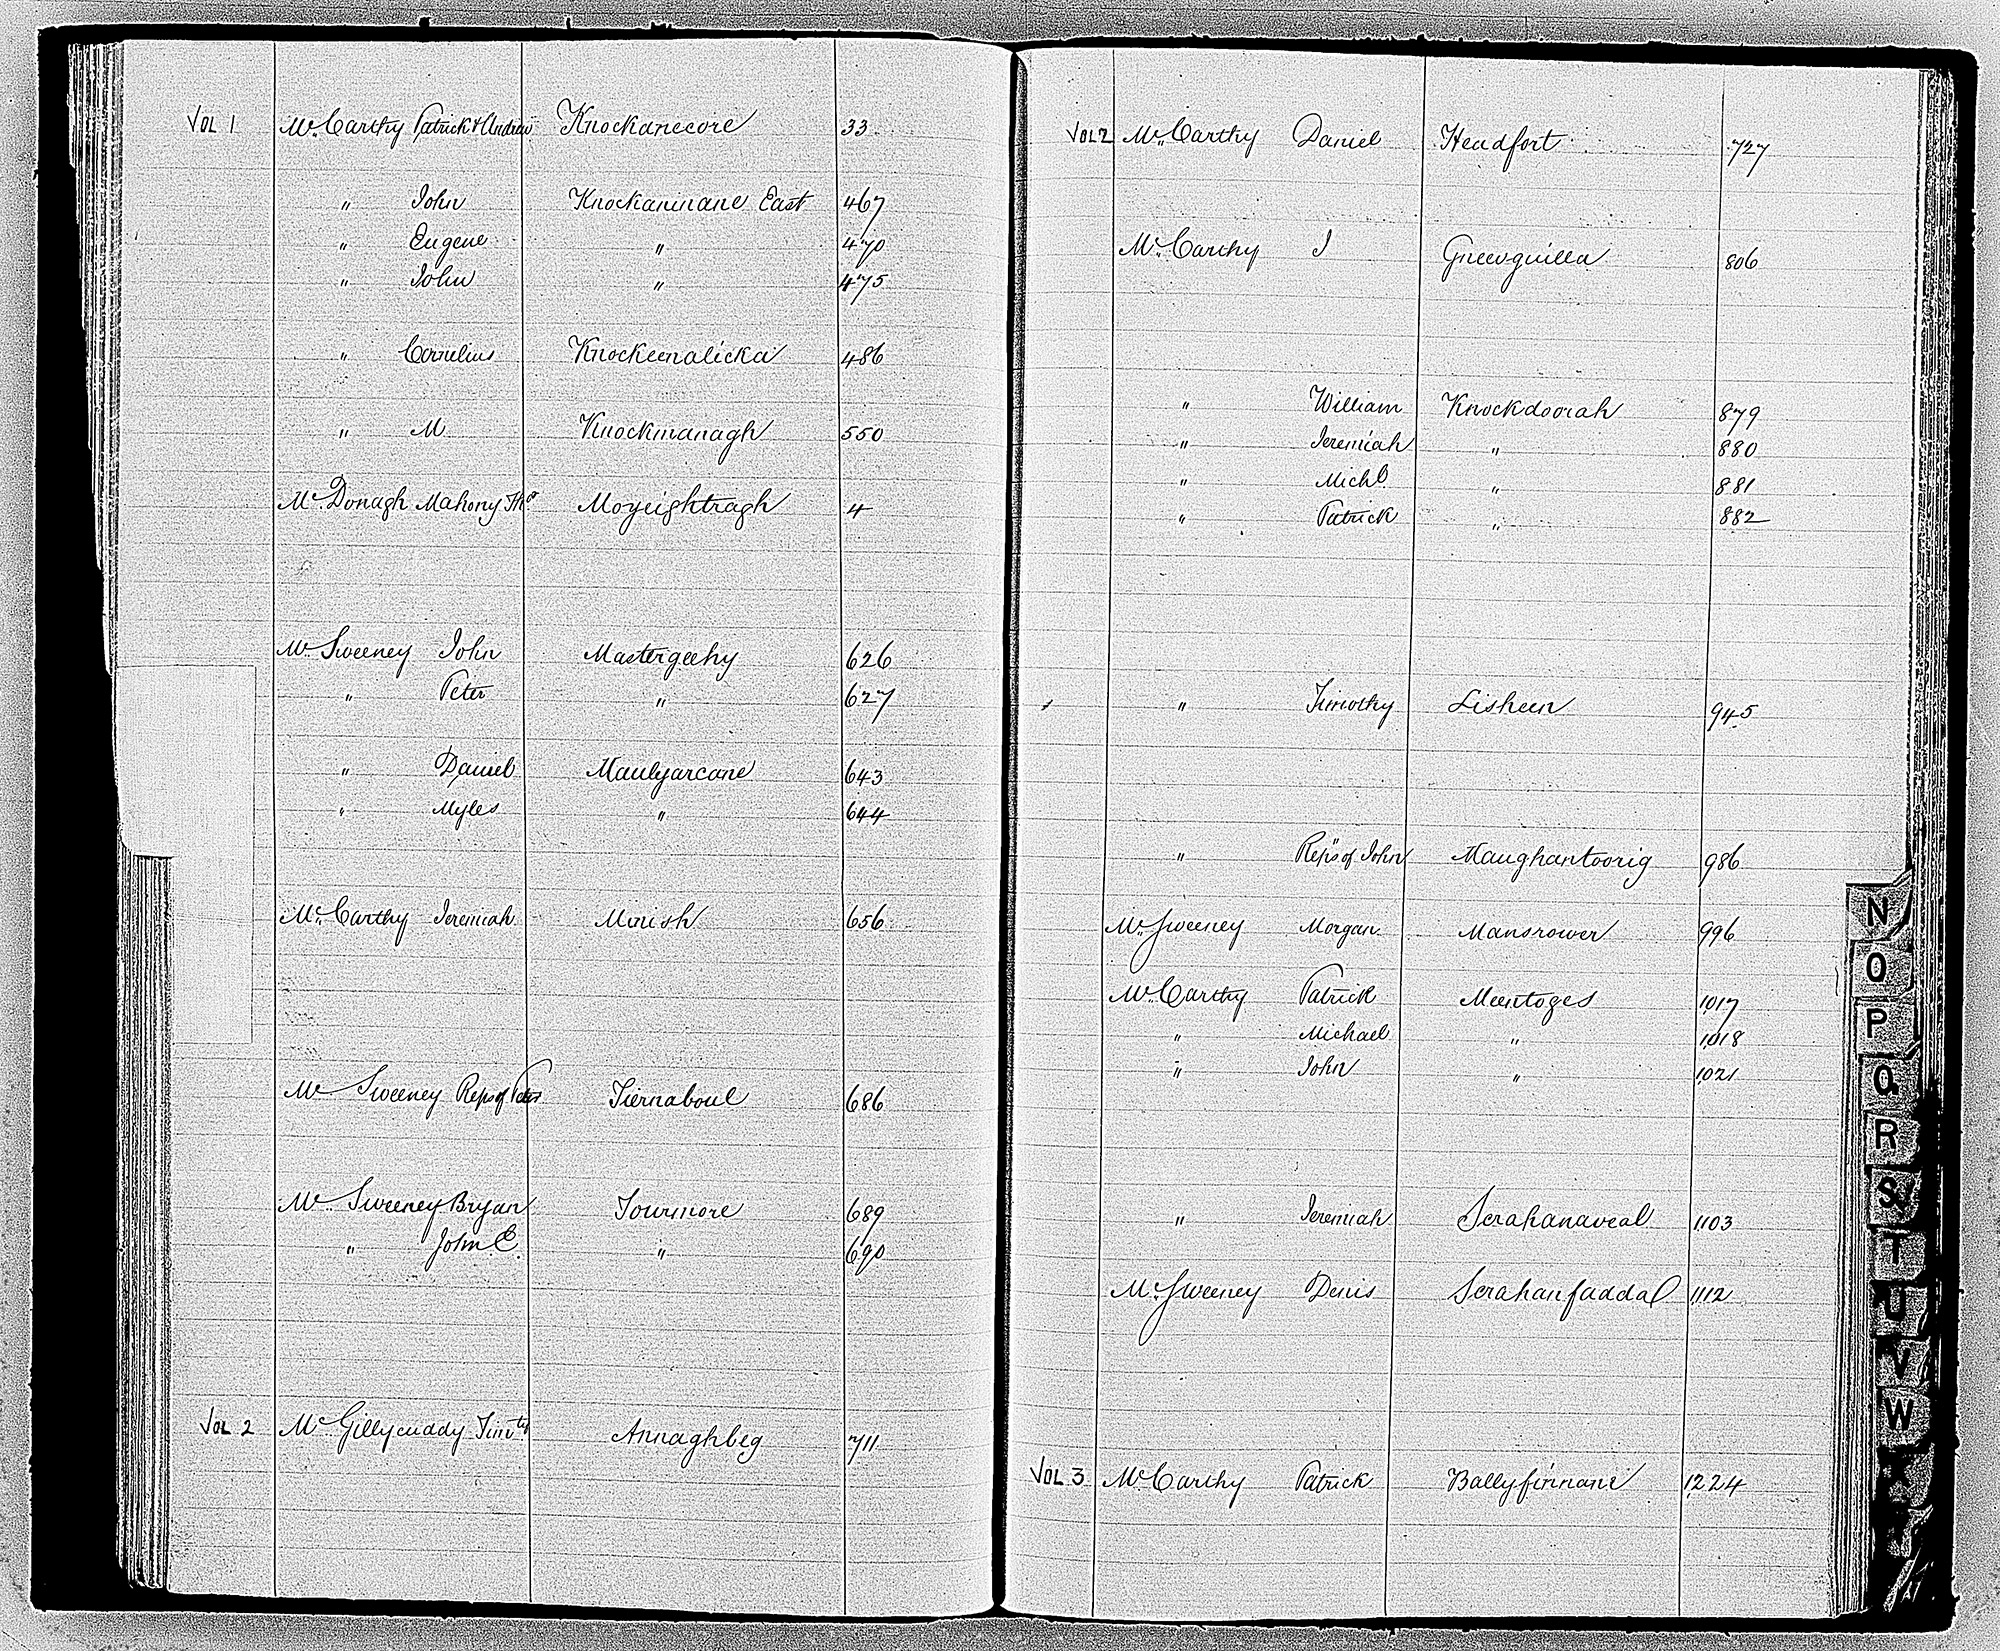 VOL 1 Mc. Carthy Patrick & Andrew Knockanecore 33
" John Knockaninane East 467
" Eugene " 470
" John " 475
" Cornelius Knockeenalicka 486
" M Knockmanagh 550
Mc. Donagh Mahony Thos Moyeightragh 4
Mc. Sweeney John Mastergeehy 626
" Peter " 627
" Daniel Maulyarcane 643
" Myles " 644
Mc. Carthy Jeremiah Minish 656
Mc. Sweeney Reps of Peter Tiernaboul 686
Mc. Sweeney Bryan Tourmore 689
" John C. " 690
VOL 2 Mc. Gillycuddy Timty Annaghbeg 711
VOL 2 Mc. Carthy Daniel Headfort 727
Mc. Carthy J Gneevguilla 806
" William Knockdoorah 879
" Jeremiah " 880
" Michl " 881
" Patrick " 882
" Timothy Lisheen 945
" Reps of John Maughantoorig 986
Mc. Sweeney Morgan Mansrower 996
Mc. Carthy Patrick Meentoges 1017
" Michael " 1018
" John " 1021
" Jeremiah Scrahanaveal 1103
Mc. Sweeney Denis Scrahanfaddal 1112
VOL 3 Mc. Carthy Patrick Ballyfinnane 1224
N
O
P
Q
R
S
T
U
V
W